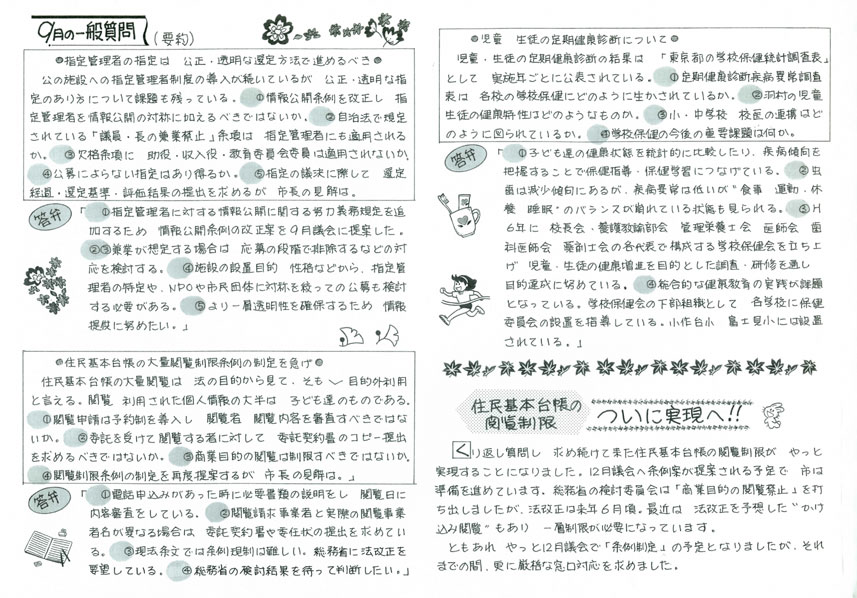 9月の一般質問（要約）
◉指定管理者の指定は 公正・透明な選定方法で進めるべき◉
公の施設への指定管理者制度の導入が続いているが 公正・透明な指
定のあり方について課題も残っている。①情報公開条例を改正し 指
定管理者を情報公開の対称に加えるべきではないか。②自治法で規定
されている「議員・長の兼業禁止」条項は 指定管理者にも適用される
か。③欠格条項に 助役・収入役・教育委員会委員は適用されないか。
④公募によらない指定はあり得るか。⑤指定の議決に際して 選定
経過・選定基準・評価結果の提出を求めるが 市長の見解は。
答弁
「①指定管理者に対する情報公開に関する努力義務規定を追
加するため 情報公開条例の改正案を9月議会に提案した。
②③兼業が想定する場合は 応募の段階で排除するなどの対
応を検討する。④施設の設置目的 性格などから、指定管
理者の特定や、NPOや市民団体に対称を絞っての公募も検討
する必要がある。⑤より一層透明性を確保するため 情報
提供に努めたい。」
◉住民基本台帳の大量閲覧制限条例の制定を急げ◉
住民基本台帳の大量閲覧は 法の目的から見て、そも〱目的外利用
と言える。閲覧 利用された個人情報の大半は 子ども達のものである。
①閲覧申請は予約制を導入し 閲覧者 閲覧内容を審査すべきではな
いか。②委託を受けて閲覧する者に対して 委託契約書のコピー提出
を求めるべきではないか。③商業目的の閲覧は制限すべきではないか。
④閲覧制限条例の制定を再度提案するが 市長の見解は。」
答弁
「①電話申込みがあった時に必要書類の説明をし 閲覧日に
内容審査をしている。②閲覧請求事業者と実際の閲覧事業
者名が異なる場合は 委託契約書や委任状の提出を求めてい
る。③現法条文では条例規制は難しい。総務省に法改正を
要望している。④総務省の検討結果を待って判断したい。」
◉児童 生徒の定期健康診断について◉
児童・生徒の定期健康診断の結果は 「東京都の学校保健統計調査表」
として 実施年ごとに公表されている。①定期健康診断疾病異常調査
表は 各校の学校保健にどのように生かされているか。②羽村の児童
生徒の健康特性はどのようなものか。③小・中学校 校医の連携はど
のように図られているか。④学校保健の今後の重要課題は何か。
答弁
「①子ども達の健康状態を統計的に比較したり、疾病傾向を
把握することで保健指導・保健学習につなげている。②虫
歯は減少傾向にあるが、疾病異常は低いが“食事 運動・休
養 睡眠”のバランスが崩れている状態も見られる。③H
6年に 校長会・養護教諭部会 管理栄養士会 医師会 歯
科医師会 薬剤士会の各代表で構成する学校保健会を立ち上
げ 児童・生徒の健康増進を目的とした調査・研修を通し
目的達成に努めている。④総合的な健康教育の実践が課題
となっている。学校保健会の下部組織として 各学校に保健
委員会の設置を指導している。小作台小 富士見小には設置
されている。」
住民基本台帳の
閲覧制限
ついに実現へ!!
くり返し質問し 求め続けて来た住民基本台帳の閲覧制限が やっと
実現することになりました。12月議会へ条例案が提案される予定で 市は
準備を進めています。総務省の検討委員会は「商業目的の閲覧禁止」を打
ち出しましたが、法改正は来年6月頃。最近は 法改正を予想した“かけ
込み閲覧”もあり 一層制限が必要になっています。
ともあれ やっと12月議会で「条例制定」の予定となりましたが、それ
までの間、更に厳格な窓口対応を求めました。